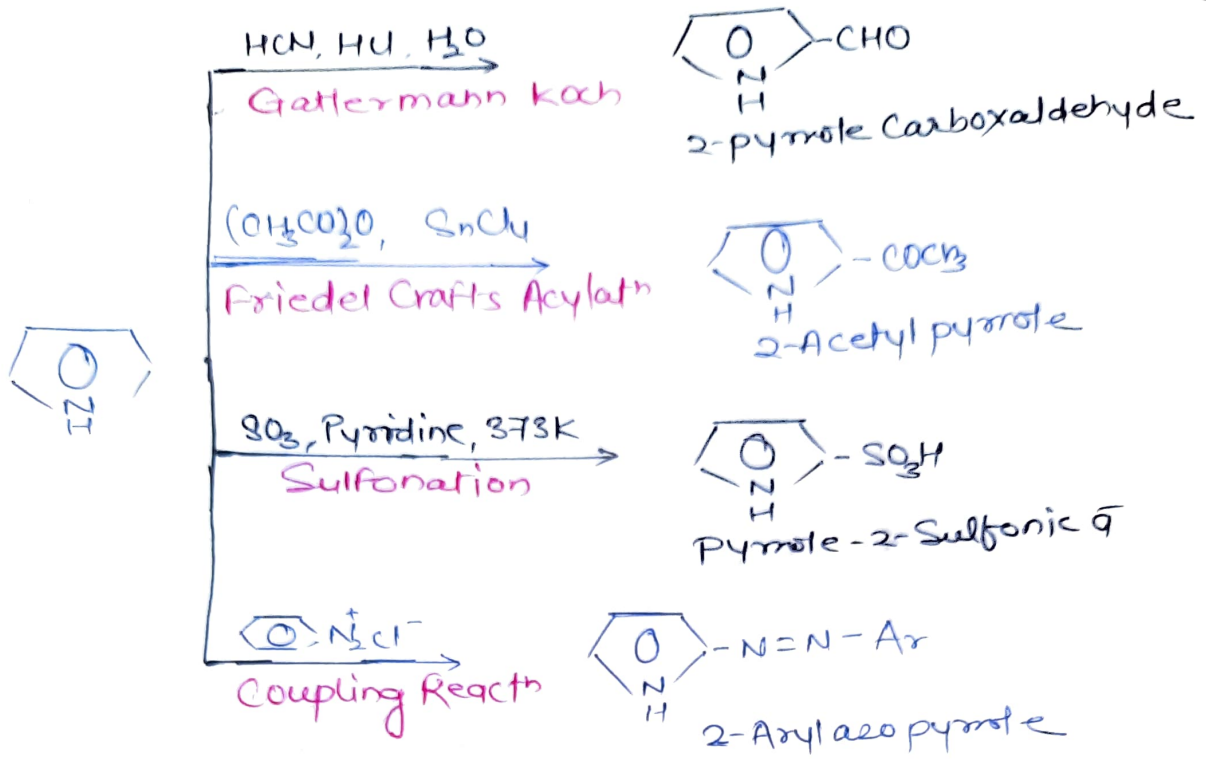 HCN, HCl, H2O
Gattermann Koch
CHO
N
H
2-pyrrole Carboxaldehyde
(CH3CO)2O, SnCl4
Friedel Crafts Acylatn
COCH3
N
H
2-Acetyl pyrrole
N
H
SO3, Pyridine, 373K
Sulfonation
SO3H
N
H
Pyrrole-2-Sulfonic a
N2+ Cl-
Coupling Reactn
-N=N-Ar
N
H
2-Arylazo pyrrole